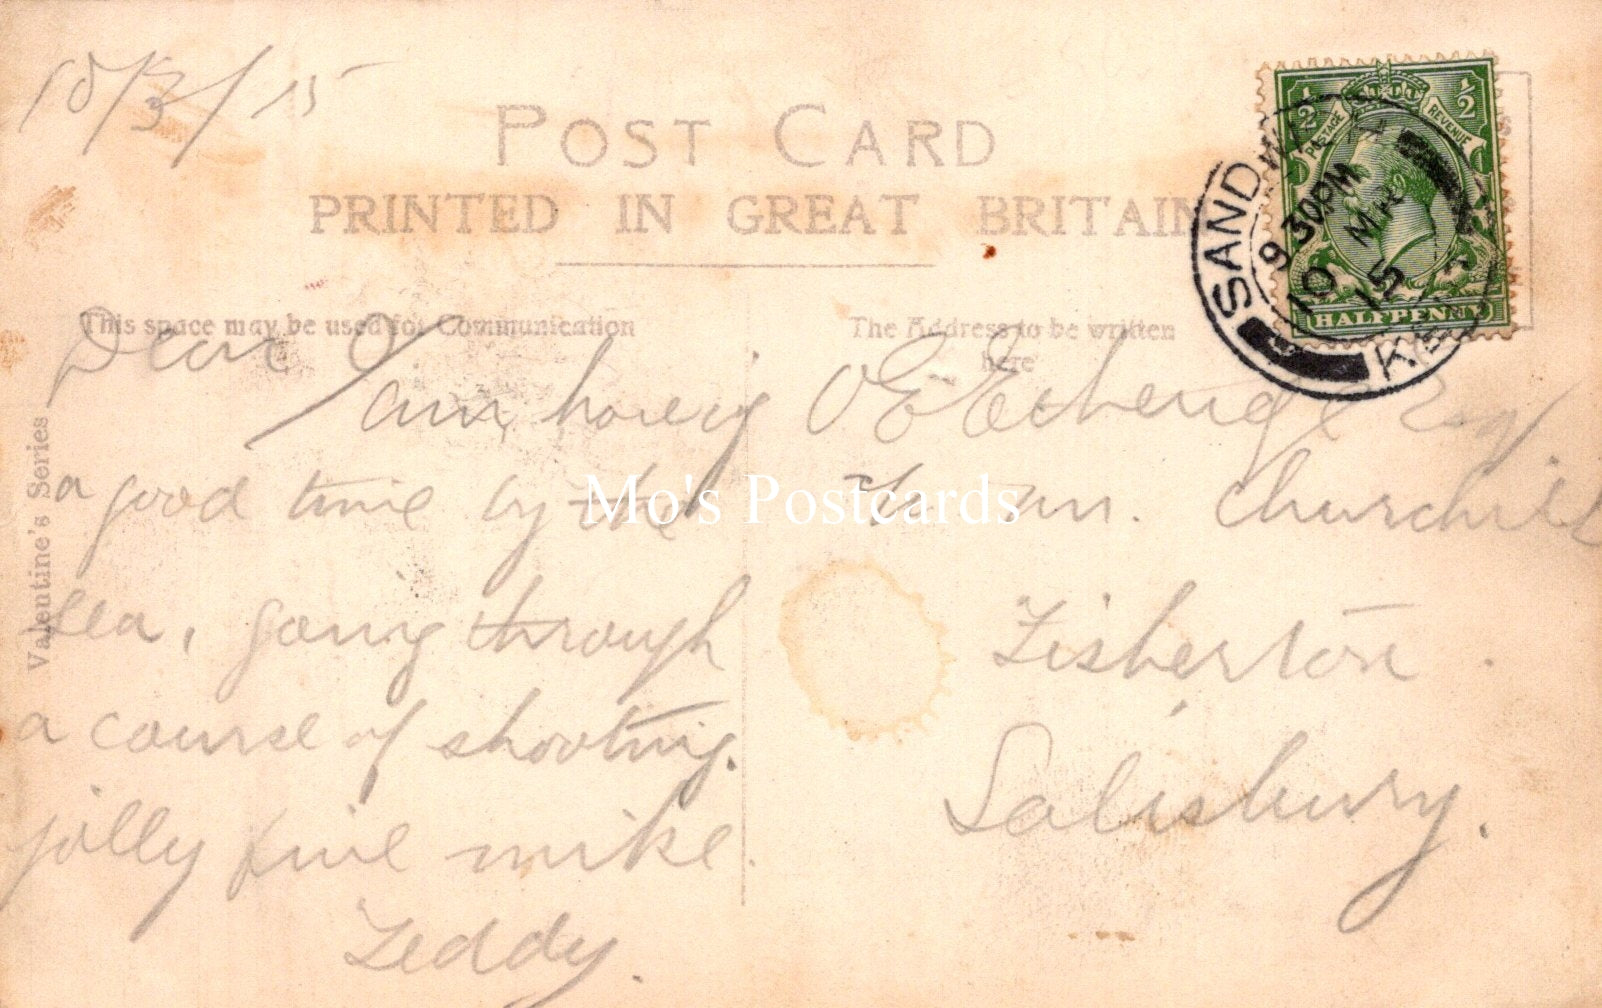 10/3/15
POST CARD
PRINTED IN GREAT BRITAIN
This space may be used for Communication
The Address to be written
here
Valentine's Series
Dear O
am having
a good time by the
sea, going through
a course of shooting.
jolly fine mike.
Teddy.
O E Esq/
Churchill
Fisherton.
Salisbury.
Mo's Postcards
½ ½
POSTAGE REVENUE
HALFPENNY
SANDWICH
9 30PM
10 MR 15
KENT